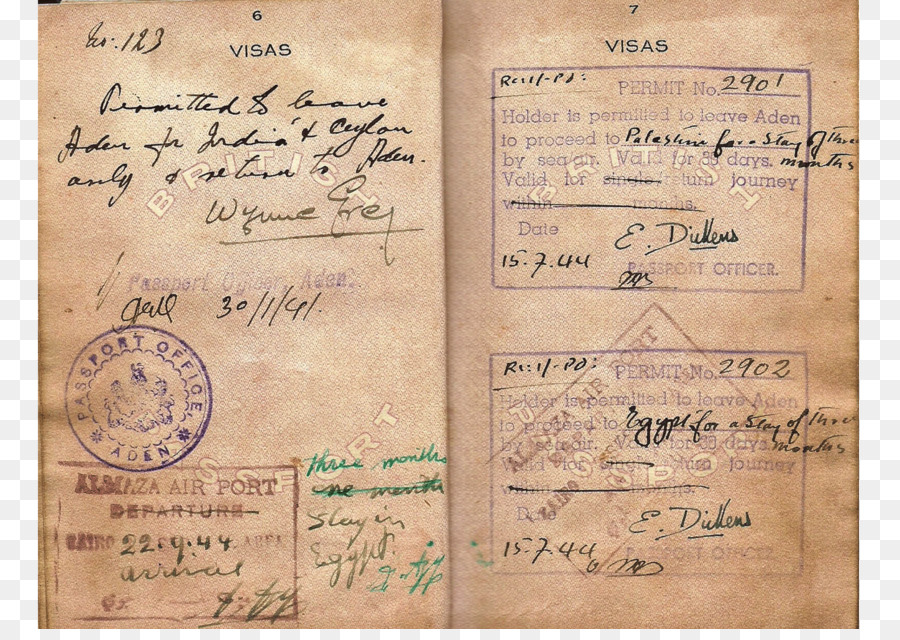 6
VISAS
No. 123
Permitted to leave
Aden for India & Ceylon
only & return to Aden.
Wynne Grey
Passport Officer, Aden.
30/1/41.
PASSPORT OFFICE
ADEN
ALMAZA AIR PORT
DEPARTURE
CAIRO 22.9.44 AREA
arrival
three months
one month
Stay in
Egypt.
BRITISH
PASSPORT
7
VISAS
PERMIT No. 2901
Holder is permitted to leave Aden
to proceed to Palastine for a Stay of three
by sea/air. Valid for 85 days. months
Valid for single return journey
within months.
Date
E. Dickens
15.7.44
PASSPORT OFFICER.
PERMIT No. 2902
Holder is permitted to leave Aden
to proceed to Egypt for a Stay of three
by sea/air. Valid for days. months
Valid for single return journey
within months.
Date
E. Dickens
15.7.44
PASSPORT OFFICER
ALMAZA AIR PORT